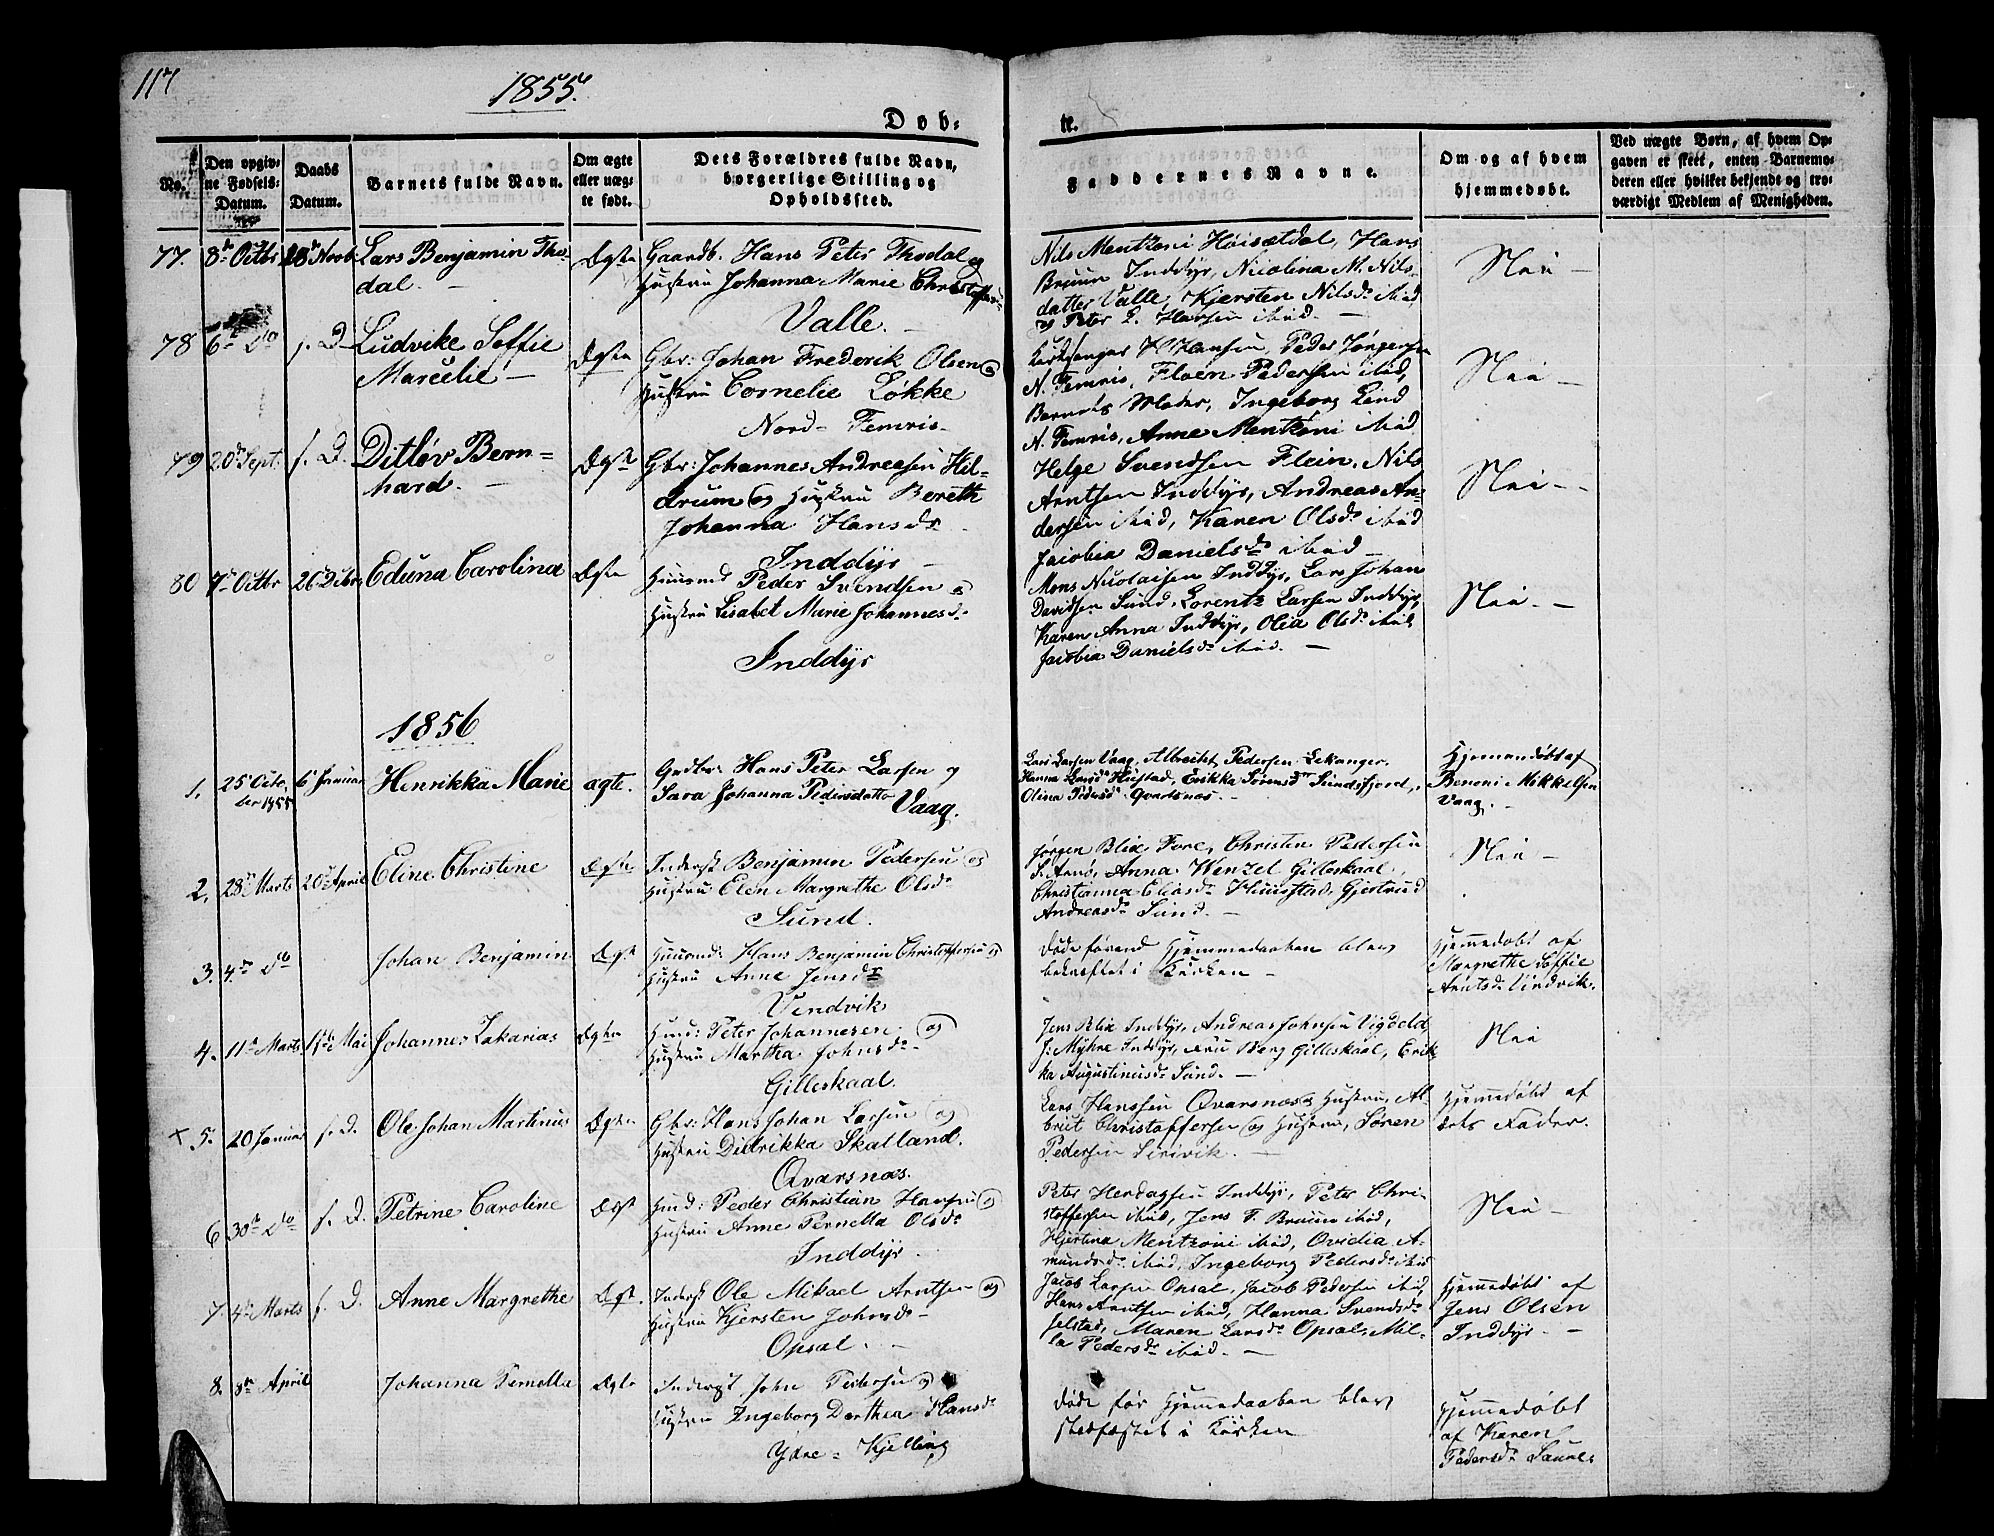 117
1855.
Døb-
te.
No.
Den opgiv-
ne Fødsels-
Datum.
Daabs
Datum.
Barnets fulde Navn.
Om ægte
eller uæg-
te født.
Dets Forældres fulde Navn,
borgerlige Stilling og
Opholdssted.
Faddernes Navne.
Om og af hvem
hjemmedøbt.
Ved uægte Børn, af hvem Op-
gaven er skeet, enten Barnemo-
deren eller hvilket bekjendt og tro-
værdigt Medlem af Menigheden.
77. 8de Octbr 28de Novb Lars Benjamin Tho-
dal. Ægte
Gaardb. Hans Peter Thodal og
Hustru Johanna Marie Christoffers-
Valle.
Nils Mentzoni Høisætdal, Hans
Bruun Inddyr, Nicolina M. Nils-
datter Valle, Kjersten Nilsd. ibid,
og Peter L. Hansen ibid.
Nei
78 6te do s. D. Ludvike Soffie
Marcelie Ægte
Gbr: Johan Frederik Olsen og
Hustru Cornelie Løkke
Nord-Femris
Kirkesanger H Hansen, Peder Jørgensen
N. Femris, Floen Pedersen ibid,
Barnets Moder, Ingeborg Lind
N. Femris, Anne Mentzoni ibid
Nei
79 20de Sept. s. D. Ditløv Bern-
hard. Ægte
Gbr: Johannes Andreasen Hil-
drum og Hustru Bereth
Johanna Hansd.
Inddyr
Helge Svendsen Flein, Nils
Arntsen Inddyr, Andreas An-
dersen ibid, Karen Olsd. ibid
Jacobia Danielsd. ibid
Nei
80 7de Octbr 26 Decbr Eduna Carolina Ægte
Huusmd Peder Svendsen og
Hustru Lisabet Marie Johannesd.
Inddyr
Mons Nicolaisen Inddyr, Lars Johan
Davidsen Sund, Lorentz Larsen Inddyr,
Karen Anna Inddyr, Olia Olsd. ibid
Jacobia Danielsd. ibid.
Nei
1856
1. 25 Octo-
ber 1855 6 Januar Henrikka Marie ægte.
Grdbr. Hans Peter Larsen og
Sara Johanna Pedersdatter
Vaag.
Lars Larsen Vaag, Albrecht Pedersen Lekanger.
Hanna Larsd. Hustad, Erikka Sørensdr Sundsfjord,
Olina Pedersd. Qvarsnæs.
Hjemmedøbt af
Benoni Mikkelsen
Vaag.
2. 28de Marts 20de April Eline Christine Ægte
Inderst Benjamin Pedersen og
Hustru Elen Margrethe Olsd.
Sund.
Jørgen Blix Fore, Christen Pedersen
S. Arnø, Anna Wenzel Gilleskaal,
Christianna Eliasd. Huusstad, Gjertrud
Andreasd. Sund.
Nei
3. 4de do Johan Benjamin Ægte
Huusmd: Hans Benjamin Christoffersen og
Hustru Anne Jensd.
Vendvik
Døde førend Hjemmedaaben blev
bekræftet i Kirken
Hjemmedøbt af
Margrethe Soffie
Arntsd. Vindvik.
4. 11te Marts 1ste Mai Johannes Zakarias Ægte
Husmd: Peter Johannesen og
Hustru Martha Johnsd.
Gilleskaal.
Jens Blix Inddyr, Andreas Johnsen Vigdold
J: Myhre Inddyr, Fru Berg Gilleskaal, Erik-
ka Augustinusd. Sund.
Nei
+ 5. 20 Januar s. D. Ole Johan Martinus Ægte
Gbr: Hans Johan Larsen og
Hustru Didrikka Skatland.
Qvarsnæs.
Lars Hanssen Qvarsnæs og Hustru, Al-
brut Christoffersen og Hustru, Sören
Pedersen Sørvik.
Hjemmedøbt af
dets Fader.
6 30te do s. D. Petrine Caroline Ægte
Husmd: Peder Christian Hansen og
Hustru Anne Pernella Olsd.
Inddyr.
Peter Hendagsen Inddyr, Peter Chri-
stoffersen ibid, Jens T. Bruun ibid,
Hjertina Mentzoni ibid, Ovidia A-
mundsd. ibid, Ingeborg Pedersd. ibid
Nei
7. 4de Marts s. D. Anne Margrethe Ægte.
Inderst Ole Mikael Arntsen og
Hustru Kjersten Johnsd.
Opsal.
Jacob Larsen Opsal, Jacob Pedersen ibid,
Hans Arntsen ibid, Hanna Svendsd.
Selstad, Maren Larsd. Opsal, Mil-
la Pedersd. ibid.
Hjemmedøbt af
Jens Olsen
Inddyr.
8. 8de April Johanna Pernella Ægte
Inderst John Pedersen og
Hustru Ingeborg Dorthea Hansd.
Ydre-Kjelling
Døde før Hjemmedaaben blev
stadfæstet i Kirken
Hjemmedøbt
af Karen
Pedersd. Saura